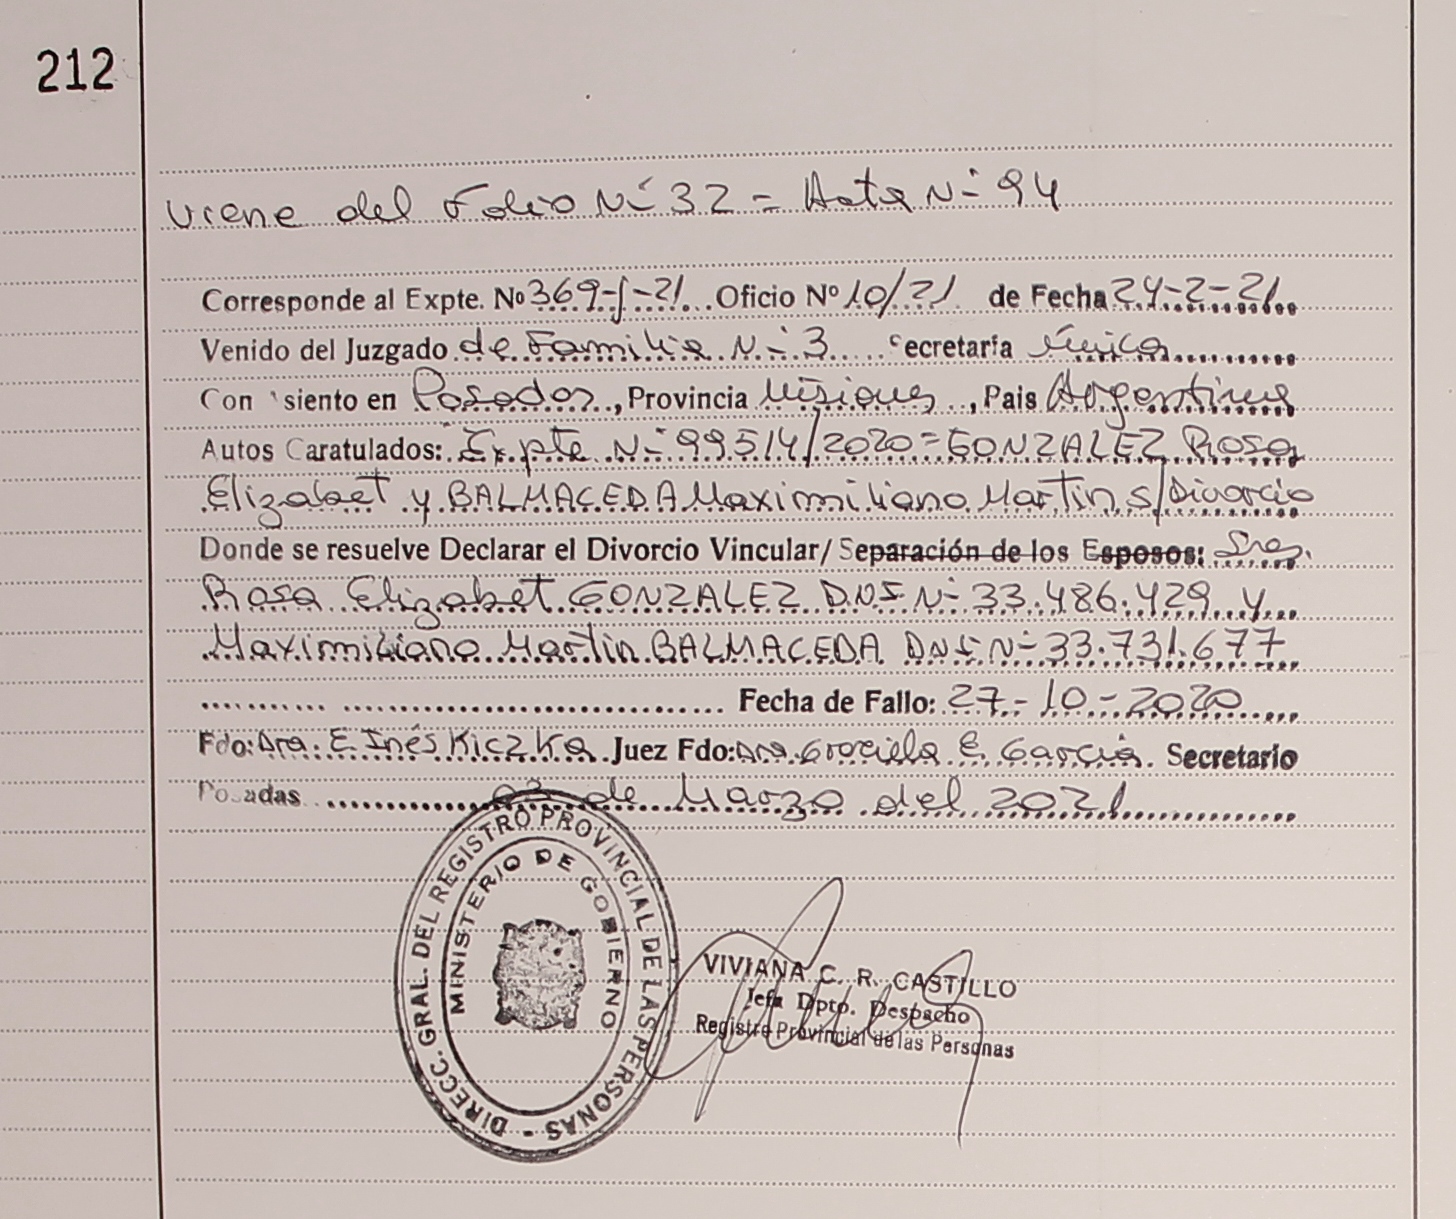 212
Viene del Folio Nº 32 = Acta Nº 94
Corresponde al Expte. Nº 369-J-21 Oficio Nº 10/21 de Fecha 24-2-21
Venido del Juzgado de Familia Nº 3 Secretaría Única
Con siento en Posadas, Provincia Misiones, Pais Argentina
Autos Caratulados: Expte Nº 99514/2020 = GONZALEZ Rosa
Elizabet y BALMACEDA Maximiliano Martin s/Divorcio
Donde se resuelve Declarar el Divorcio Vincular/ Separación de los Esposos: Sres.
Rosa Elizabet GONZALEZ DNI Nº 33.486.429 y
Maximiliano Martin BALMACEDA DNI Nº 33.731.677
Fecha de Fallo: 27-10-2020
Fdo: Dra. E. Inés Kiczka Juez Fdo: Dra. Graciela E. García. Secretario
Posadas 03 de Marzo del 2021
DIRECC. GRAL. DEL REGISTRO PROVINCIAL DE LAS PERSONAS -
MINISTERIO DE GOBIERNO
VIVIANA C. R. CASTILLO
Jefa Dpto. Despacho
Registro Provincial de las Personas